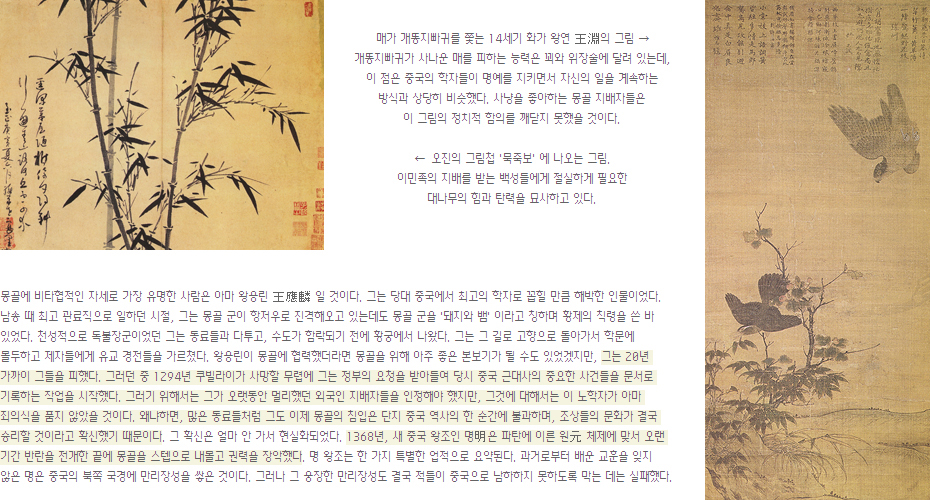 매가 개똥지빠귀를 쫓는 14세기 화가 왕연 王淵의 그림 →
개똥지빠귀가 사나운 매를 피하는 능력은 꾀와 위장술에 달려 있는데,
이 점은 중국의 학자들이 명예를 지키면서 자신의 일을 계속하는
방식과 상당히 비슷했다. 사냥을 좋아하는 몽골 지배자들은
이 그림의 정치적 함의를 깨닫지 못했을 것이다.
← 오진의 그림첩 '묵죽보' 에 나오는 그림.
이민족의 지배를 받는 백성들에게 절실하게 필요한
대나무의 힘과 탄력을 묘사하고 있다.
몽골에 비타협적인 자세로 가장 유명한 사람은 아마 왕응린 王應麟 일 것이다. 그는 당대 중국에서 최고의 학자로 꼽힐 만큼 해박한 인물이었다.
남송 때 최고 관료직으로 일하던 시절, 그는 몽골 군이 항저우로 진격해오고 있는데도 몽골 군을 '돼지와 뱀' 이라고 칭하며 황제의 칙령을 쓴 바
있었다. 천성적으로 독불장군이었던 그는 동료들과 다투고, 수도가 함락되기 전에 황궁에서 나왔다. 그는 그 길로 고향으로 돌아가서 학문에
몰두하고 제자들에게 유교 경전들을 가르쳤다. 왕응린이 몽골에 협력했더라면 몽골을 위해 아주 좋은 본보기가 될 수도 있었겠지만, 그는 20년
가까이 그들을 피했다. 그러던 중 1294년 쿠빌라이가 사망할 무렵에 그는 정부의 요청을 받아들여 당시 중국 근대사의 중요한 사건들을 문서로
기록하는 작업을 시작했다. 그러기 위해서는 그가 오랫동안 멀리했던 외국인 지배자들을 인정해야 했지만, 그것에 대해서는 이 노학자가 아마
죄의식을 품지 않았을 것이다. 왜냐하면, 많은 동료들처럼 그도 이제 몽골의 침입은 단지 중국 역사의 한 순간에 불과하며, 조상들의 문화가 결국
승리할 것이라고 확신했기 때문이다. 그 확신은 얼마 안 가서 현실화되었다. 1368년, 새 중국 왕조인 명明은 파탄에 이른 원元 체제에 맞서 오랜
기간 반란을 전개한 끝에 몽골을 스텝으로 내몰고 권력을 장악했다. 명 왕조는 한 가지 특별한 업적으로 요약된다. 과거로부터 배운 교훈을 잊지
않은 명은 중국의 북쪽 국경에 만리장성을 쌓은 것이다. 그러나 그 웅장한 만리장성도 결국 적들이 중국으로 남하하지 못하도록 막는 데는 실패했다.